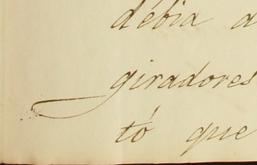 débia a
giradores
tó que